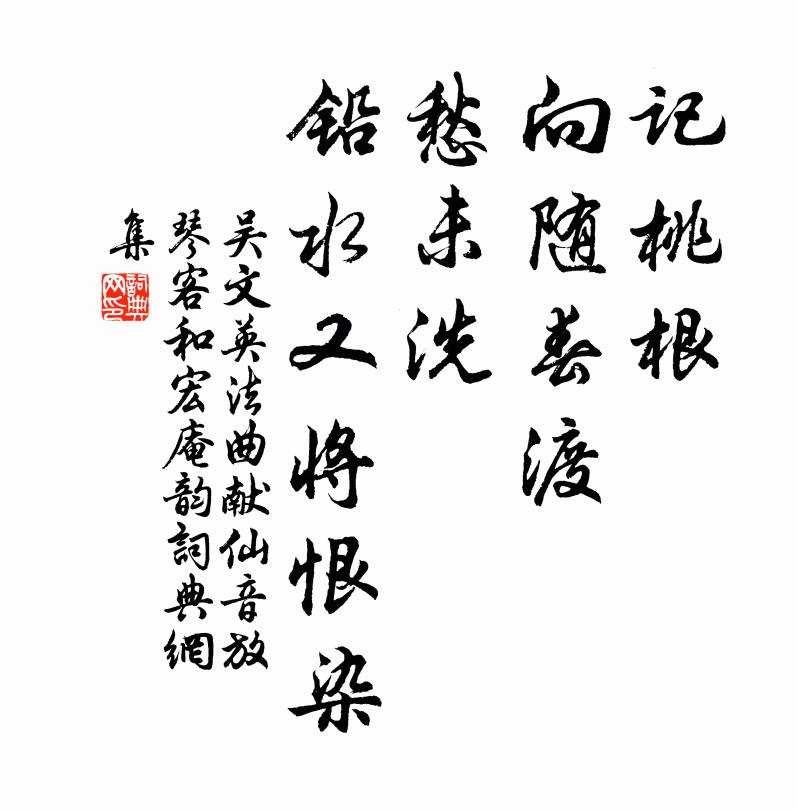 记桃根
向随春渡
愁未洗
铅水又将恨染
吴文英法曲献仙音放
琴客和宏庵韵詞典網
集
詞典
网印